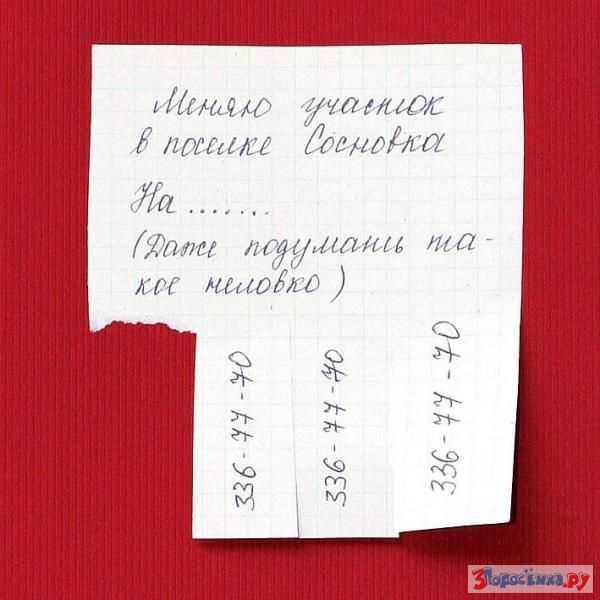 Меняю участок
в поселке Сосновка
На.......
(Даже подумать та-
кое неловко)
336-77-70
336-77-70
336-77-70
3Поросёнка.ру